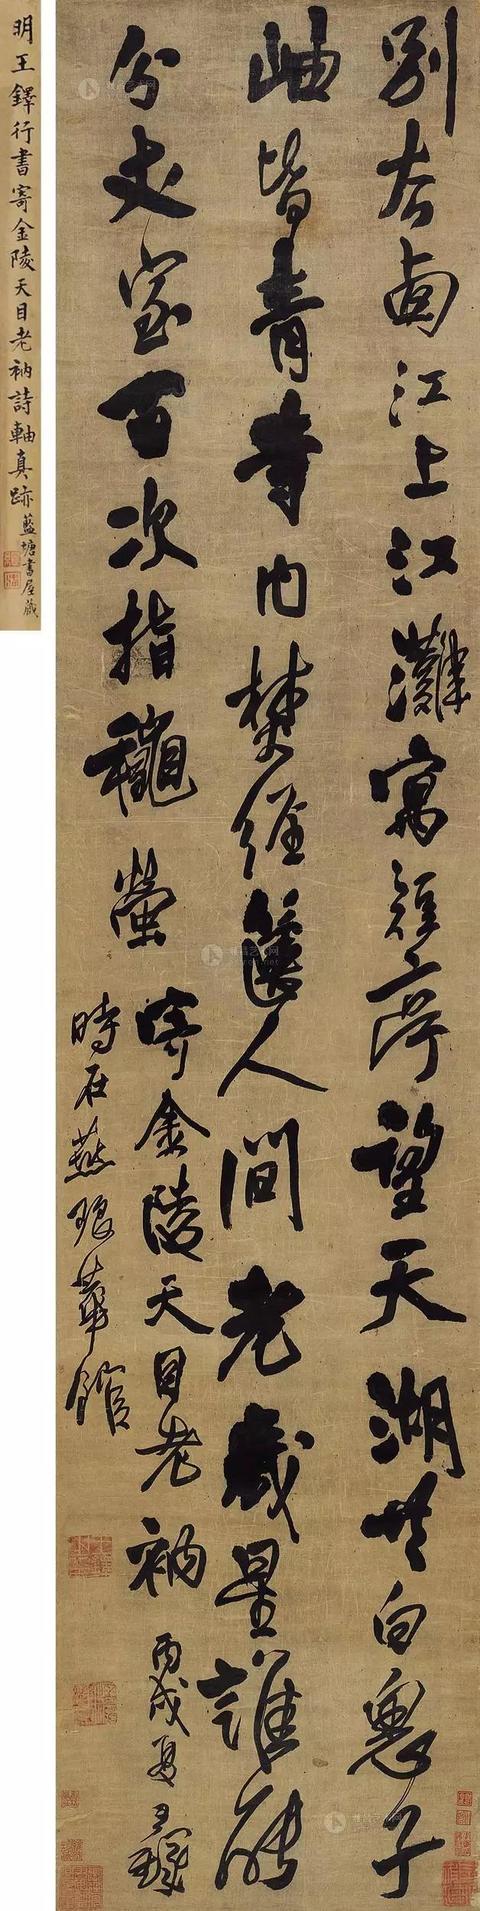 別去西江上江灘寓短亭望天湖共白思子
岫皆青寺內焚經篋人間老歲星誰能
分丈室百次指龝螢 寄金陵天目老衲 丙戌夏王鐸
時在燕琅華館
明王鐸行書寄金陵天目老衲詩軸真跡 藍塘書屋藏